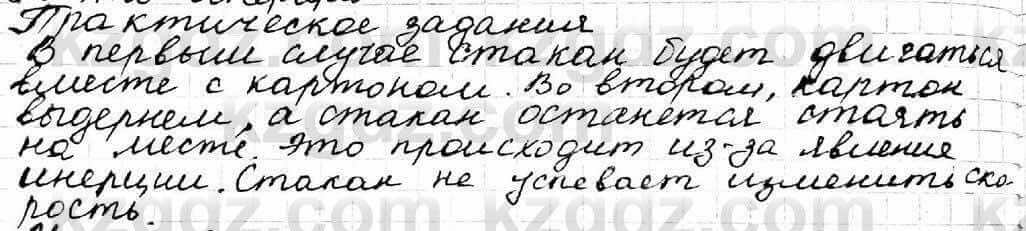 Практическое задания
В первый случае стакан будет двигаться
вместе с картоном. Во втором, картон
выдернем, а стакан останется стоять
на месте. Это происходит из-за явления
инерции. Стакан не успевает изменить ско
рость.